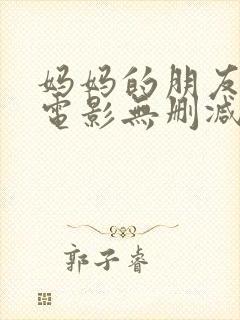 妈妈的朋友
電影無删减
郭子睿